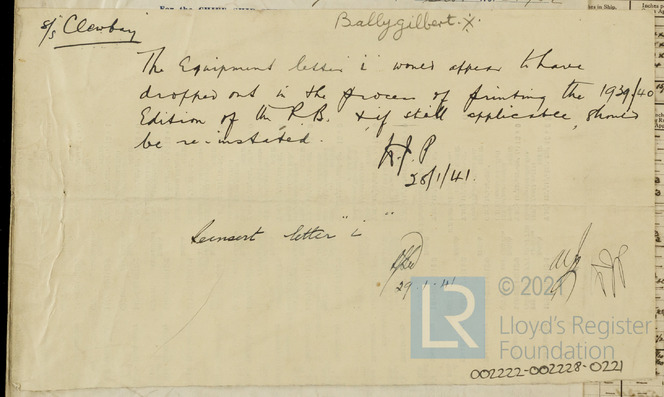 For the
Ballygilbert.
s/s Clewbay
The Equipment letter i would appear to have
dropped out in the process of printing the 1939/40
Edition of the R.B. & if still applicable, should
be re-instated.
28/1/41.
Reinsert letter "i"
29.1.41
LR
© 2021
Lloyd's Register
Foundation
002222-002228-0221